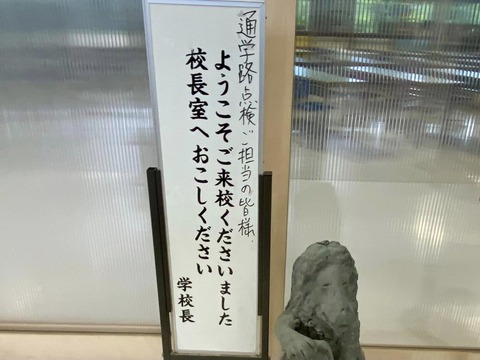 通学路点検ご担当の皆様、
ようこそご来校くださいました
校長室へおこしください
学校長